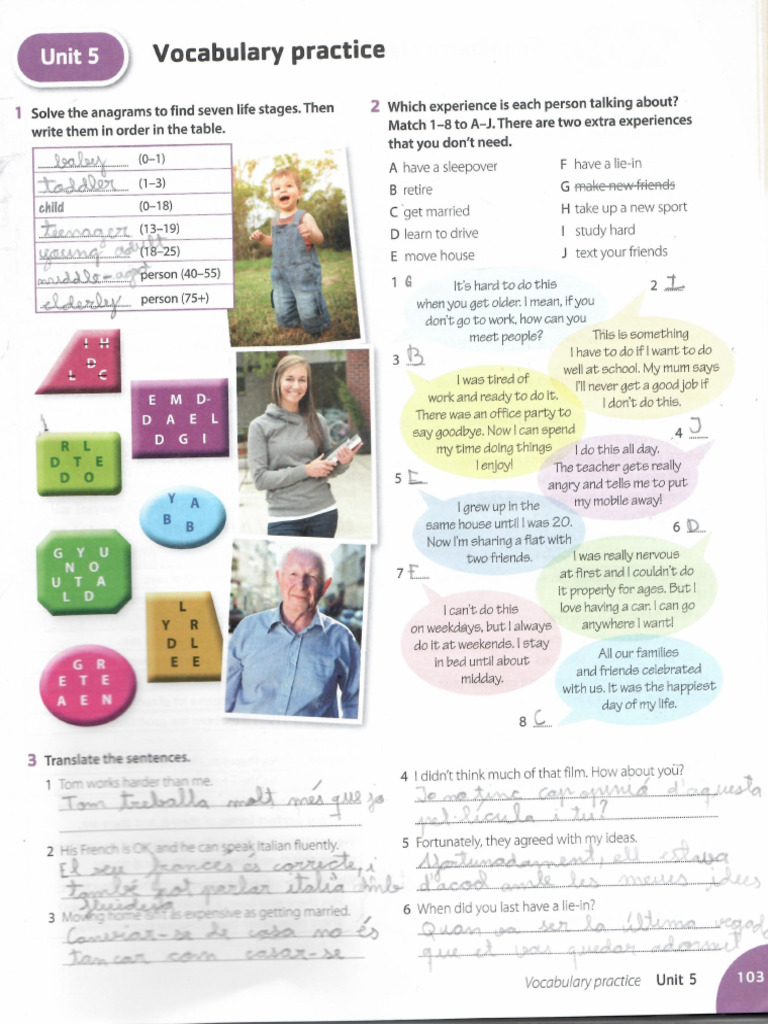 Unit 5 Vocabulary practice
1 Solve the anagrams to find seven life stages. Then
write them in order in the table.
baby (0–1)
toddler (1–3)
child (0–18)
teenager (13–19)
young adult (18–25)
middle-aged person (40–55)
elderly person (75+)
I H
D
L C
E M D-
D A E L
D G I
R L
D T E
D O
Y A
B B
G Y U
N O
U T A
L D
L
Y R
D L
E E
G R
E T E
A E N
2 Which experience is each person talking about?
Match 1–8 to A–J. There are two extra experiences
that you don't need.
A have a sleepover
B retire
C get married
D learn to drive
E move house
F have a lie-in
G make new friends
H take up a new sport
I study hard
J text your friends
1 G
It's hard to do this
when you get older. I mean, if you
don't go to work, how can you
meet people?
2 I
This is something
I have to do if I want to do
well at school. My mum says
I'll never get a good job if
I don't do this.
3 B
I was tired of
work and ready to do it.
There was an office party to
say goodbye. Now I can spend
my time doing things
I enjoy!
4 J
I do this all day.
The teacher gets really
angry and tells me to put
my mobile away!
5 E
I grew up in the
same house until I was 20.
Now I'm sharing a flat with
two friends.
6 D
I was really nervous
at first and I couldn't do
it properly for ages. But I
love having a car. I can go
anywhere I want!
7 F
I can't do this
on weekdays, but I always
do it at weekends. I stay
in bed until about
midday.
8 C
All our families
and friends celebrated
with us. It was the happiest
day of my life.
3 Translate the sentences.
1 Tom works harder than me.
Tom treballa molt més que jo
2 His French is OK and he can speak Italian fluently.
El seu frances és correcte, i
també pot parlar italià amb
fluidesa
3 Moving home isn't as expensive as getting married.
Canviar-se de casa no és
tan car com casar-se
4 I didn't think much of that film. How about you?
Jo no tinc cap opinió d'aquesta
pel·lícula i tu?
5 Fortunately, they agreed with my ideas.
Afortunadament, ell estava
d'acod amb les meves idees
6 When did you last have a lie-in?
Quan va ser la última vegada
que et vas quedar adormit
Vocabulary practice Unit 5 103